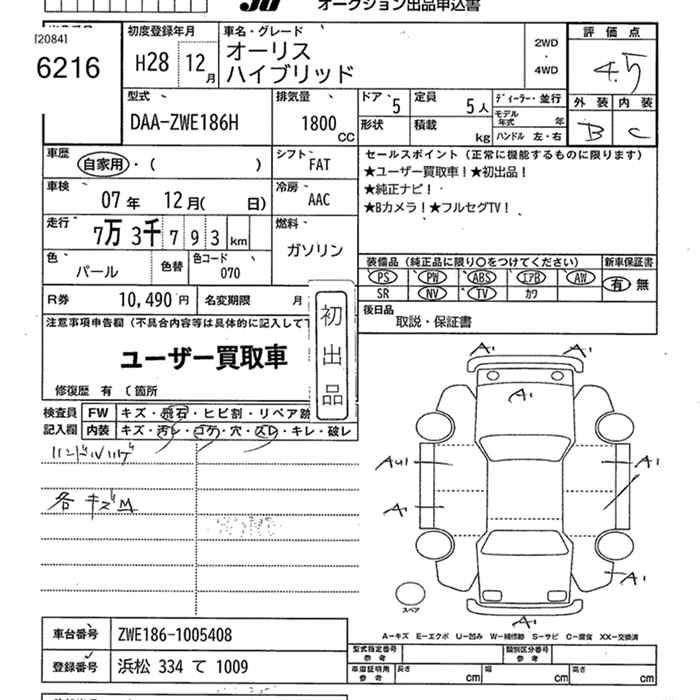 オークション出品申込書
[2084]
6216
初度登録年月
H28 12月
車名・グレード
オーリス
ハイブリッド
2WD
・
4WD
評価点
4.5
型式
DAA-ZWE186H
排気量
1800 CC
ドア 5
定員 5人
形状
積載 kg
ディーラー・並行
モデル年式 年
ハンドル 左・右
外装 内装
B C
車歴
自家用・( )
シフト
FAT
セールスポイント (正常に機能するものに限ります)
★ユーザー買取車！★初出品！
★純正ナビ！
★Bカメラ！★フルセグTV！
車検
07年 12月( 日)
冷房
AAC
走行
7万 3千 7 9 3 km
燃料
ガソリン
色
パール
色替
色コード
070
装備品 (純正品に限り○をつけてください)
新車保証書
PS PW ABS エアB AW
SR NV TV カワ
有 無
R券 10,490円
名変期限 月
後日品
取説・保証書
注意事項申告欄 (不具合内容等は具体的に記入して下
初出品
ユーザー買取車
修復歴 有 〔箇所
検査員
記入欄
FW キズ・飛石・ヒビ割・リペア跡
内装 キズ・汚レ・コゲ・穴・スレ・キレ・破レ
各 キズM
A1 A1
A1
AU1 A1
A1
A1
A1
スペア
A-キズ E-エクボ U-凹み W-補修跡 S-サビ C-腐食 XX-交換済
車台番号
ZWE186-1005408
登録番号
浜松 334 て 1009
型式指定番号
参考
類別区分番号
参考
車庫証明用
参考
長さ cm
幅 cm
高さ cm